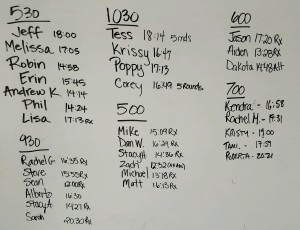 530
Jeff 18:00
Melissa 17:05
Robin 14:58
Erin 15:45
Andrew K 14:14
Phil 14:24
Lisa 17:13 Rx
930
Rachel G 16:35 Rx
Steve 15:55 Rx
Sean 12:00 Rx
Alberto 16:30
Stacy A 14:27 Rx
Sarah 20:30 Rx
1030
Tess 18:14 5 rnds
Krissy 16:47
Poppy 17:13
Corey 16:49 5 Rounds
500
Mike 15:09 Rx
Dan W. 16:29 Rx
Stacy H 14:36 Rx
Zach 12:52
Michael 13:18 Rx
Matt 16:13 Rx
600
Jason 17:20 Rx
Aiden 13:28 Rx
Dakota 14:48 Alt
700
Kendra - 16:58
Rachel M. - 19:31
Kristy - 19:00
Tim - 17:59
Roberta - 20:21